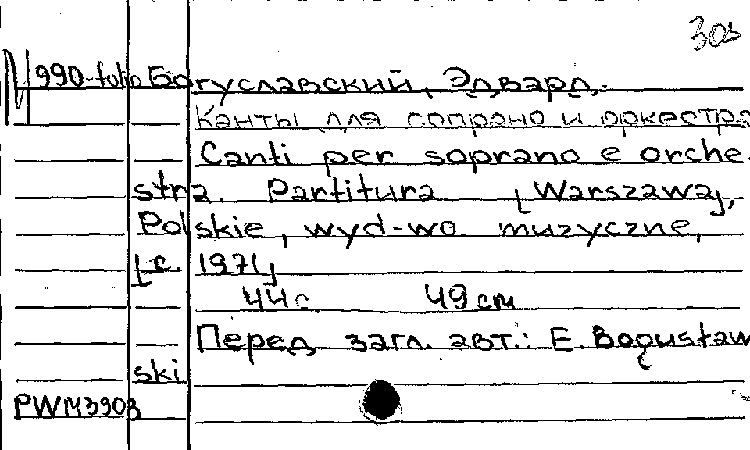 303
N 990-foho Богуславский, Эдвард.
Канты для сопрано и оркестра
Canti per soprano e orche-
stra. Partitura [Warszawa],
Polskie, wyd-wo muzyczne,
[c. 1971]
44 с 49 cm
Перед загл. авт.: E. Bogusław
ski
PWM3903